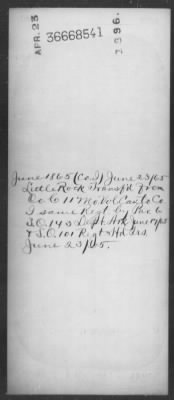 APR. 23
36668541
1996.
June 1865 (Co I) June 23/65
Little Rock Transfd from
Co G 11 Mo Vol Cav to Co
I same Regt by Par 6
S.O. 143 Dept Ark June 17/65
& S.O. 101 Regt Hd Qrs.
June 23/65.